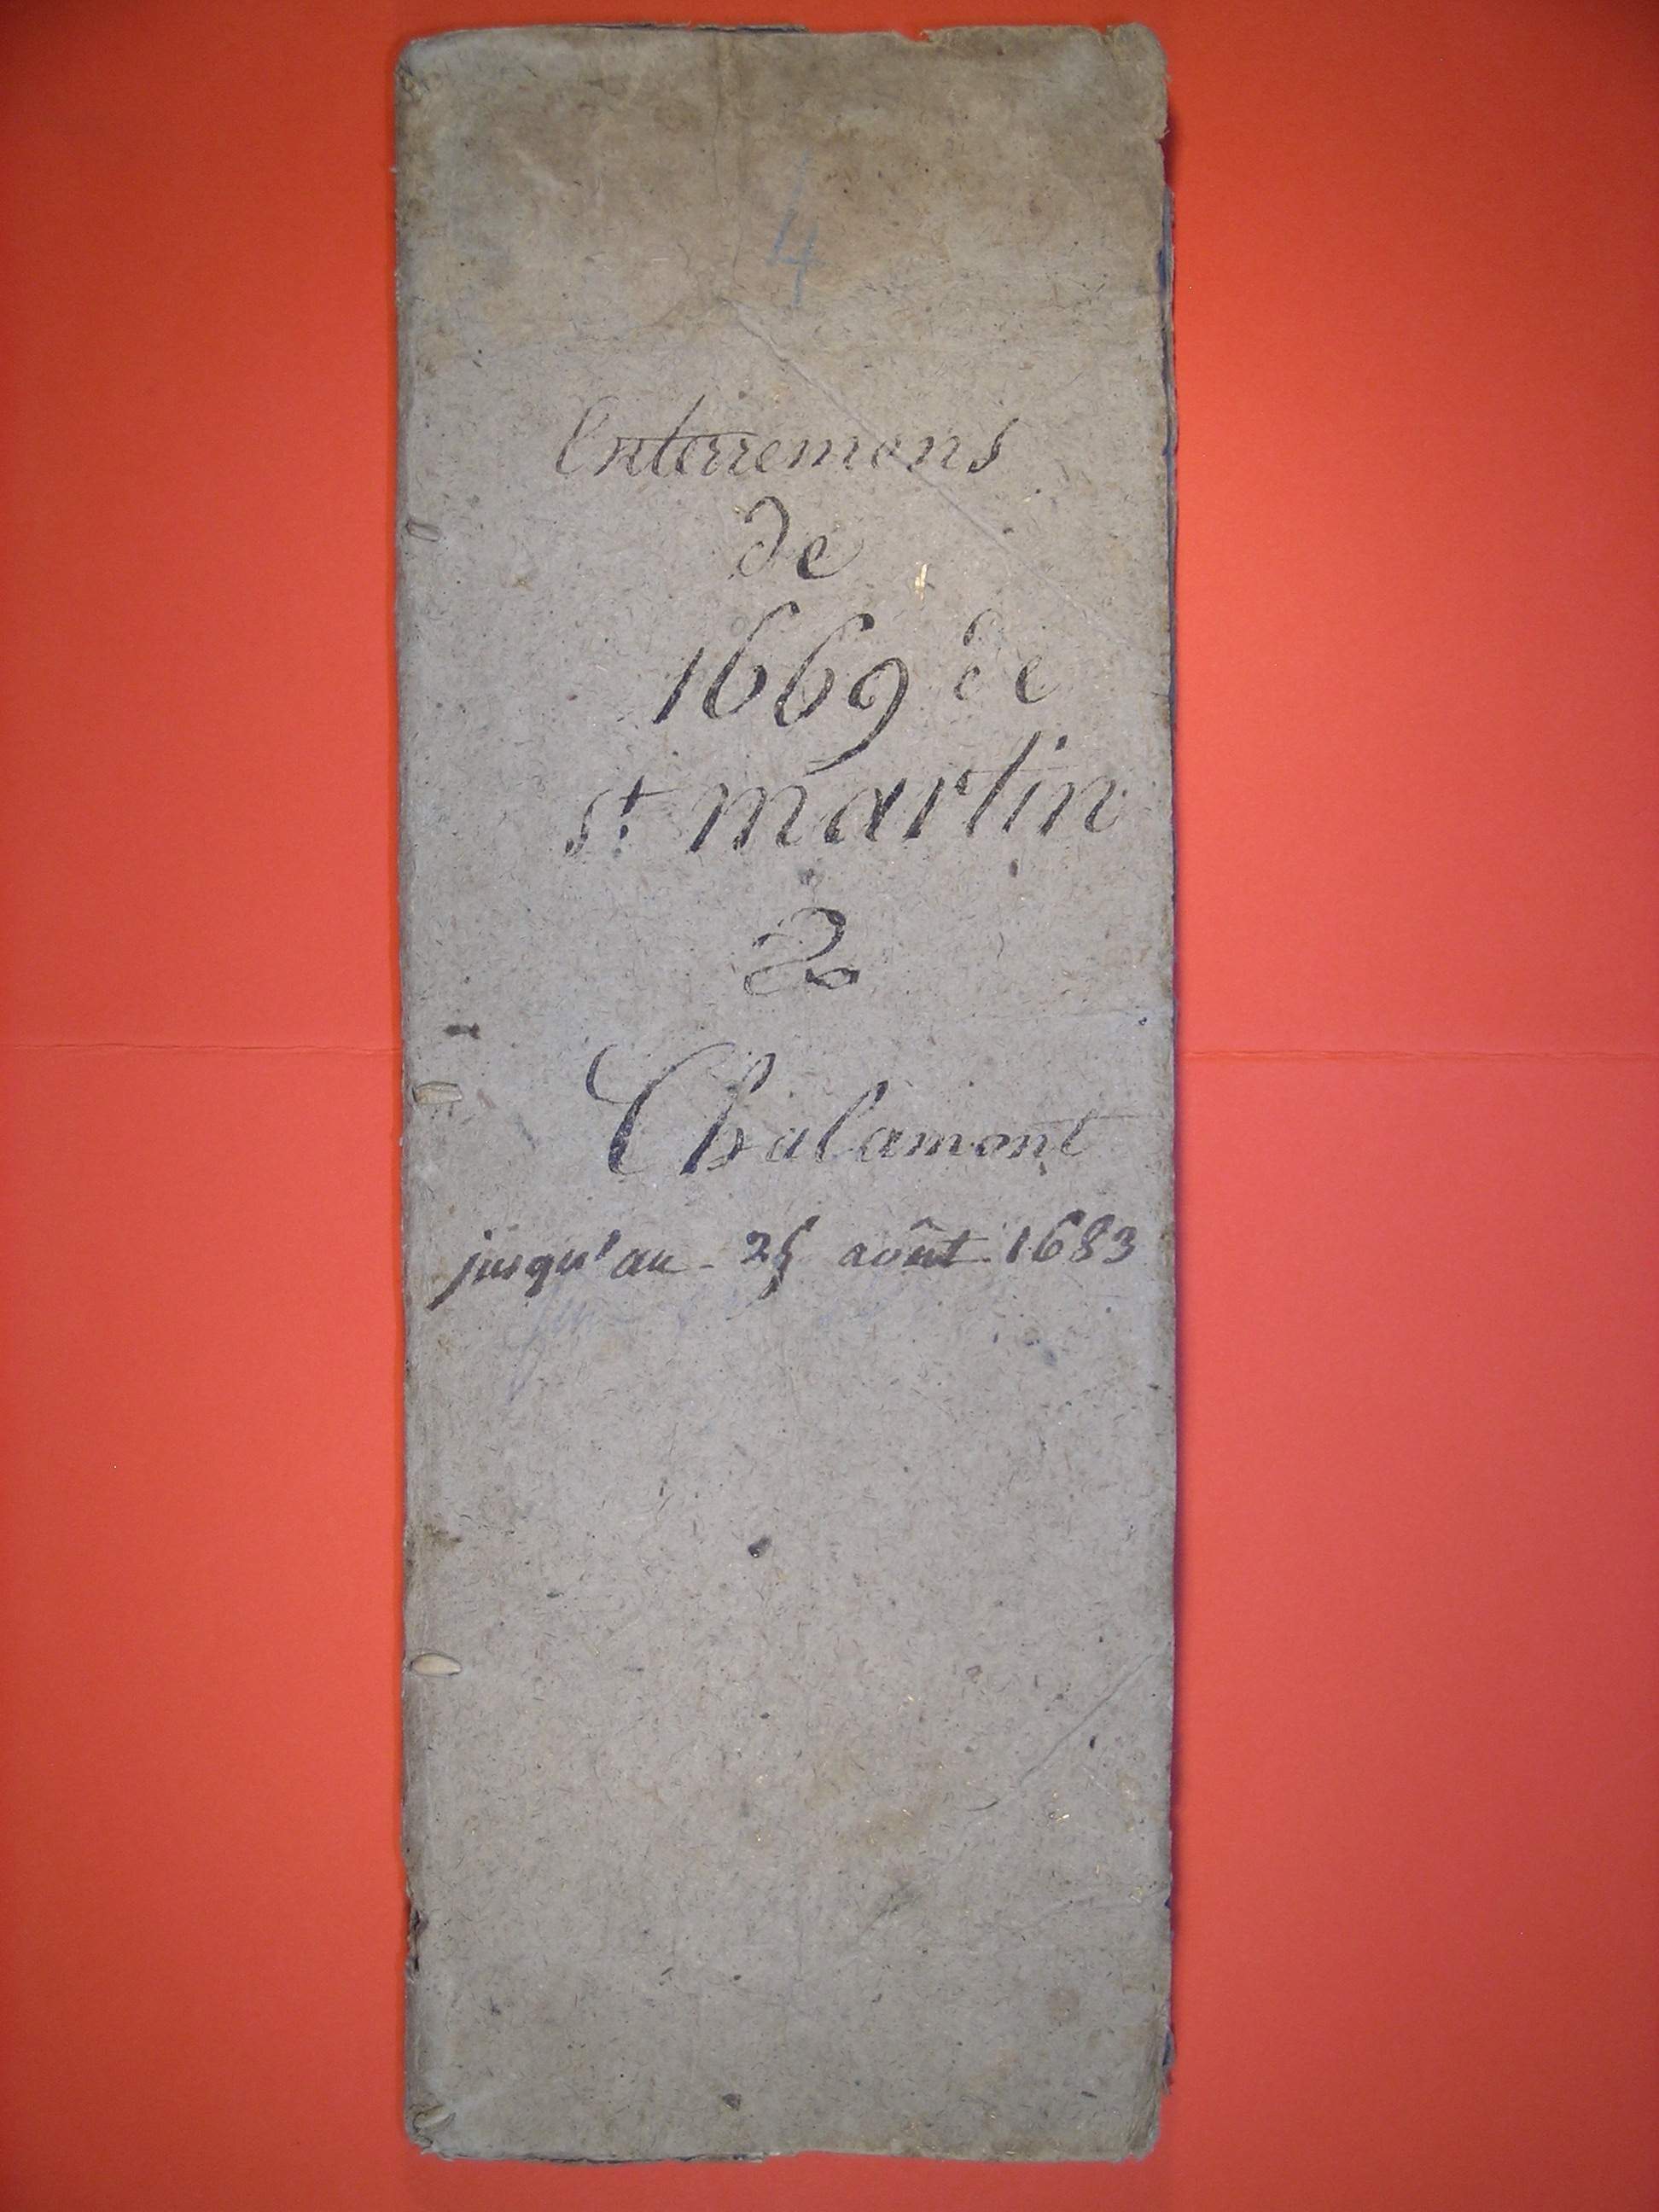 4
Enterremens
de
1669 de
st martin
2
Chalamont
jusqu'au - 25 août 1683